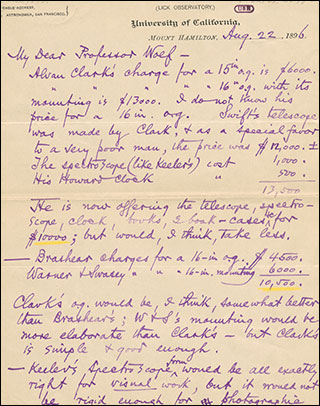 CABLE ADDRESS,
ASTRONOMER, SAN FRANCISCO.
(LICK OBSERVATORY.)
University of California,
MOUNT HAMILTON, Aug. 22 1896
My Dear Professor Woef —
Alvan Clark's charge for a 15 in o.g. is $6000.
" " " " 16 in o.g. with its
mounting is $13000. I do not know his
price for a 16 in. o.g. Swift's telescope
was made by Clark, & as a special favor
to a very poor man, the price was $12,000. ±
The spectroscope (like Keeler's) cost 1,000.
His Howard Clock " 500.
13,500
He is now offering the telescope, spectro-
scope, clock, books, & book-cases, for
$10000; but would, I think, take less.
— Brashear charges for a 16-in o.g. $4500.
Warner & Swasey " " 16-in. mounting 6000.
10,500.
Clark's o.g. would be, I think, somewhat better
than Brashear's; W & S's mounting would be
more elaborate than Clark's — but Clark's
is simple & good enough.
— Keeler's Spectroscope form would be all exactly
right for visual work, but it would not
be rigid enough for photographic